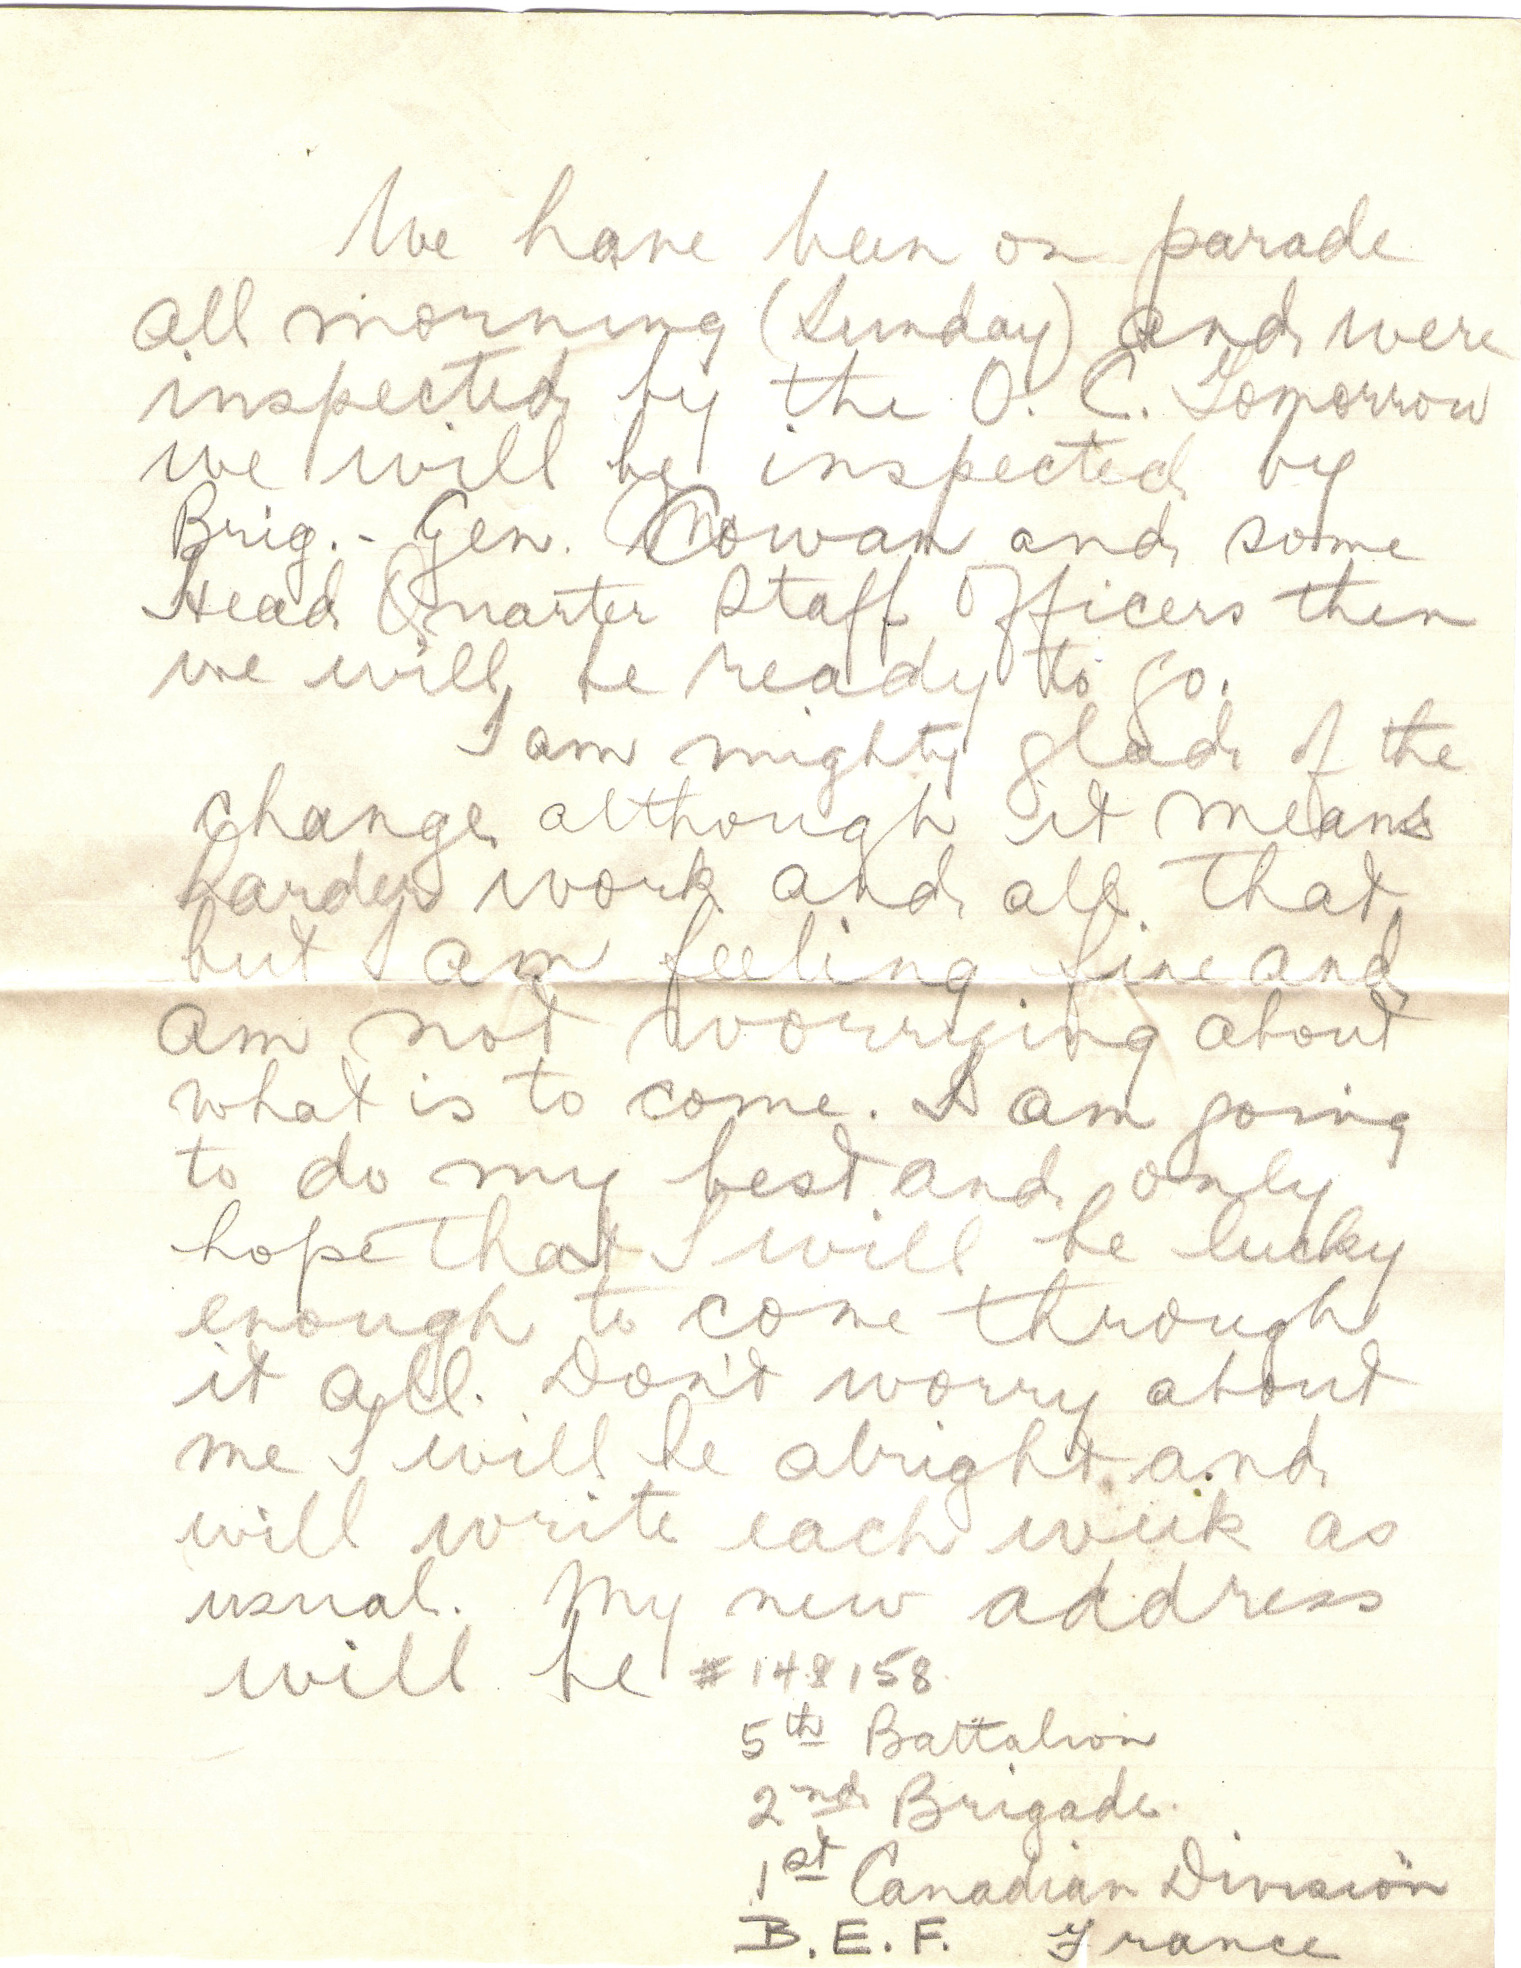 We have been on parade
all morning (Sunday) and were
inspected by the O. C. Tomorrow
we will be inspected by
Brig. - Gen. Cowan and some
Head Quarter Staff Officers then
we will be ready to go.
I am mighty glad of the
change although it means
harder work and all that
but I am feeling fine and
am not worrying about
what is to come. I am going
to do my best and only
hope that I will be lucky
enough to come through
it all. Don't worry about
me I will be alright and
will write each week as
usual. My new address
will be #148158
5th Battalion
2nd Brigade.
1st Canadian Division
B.E.F. France